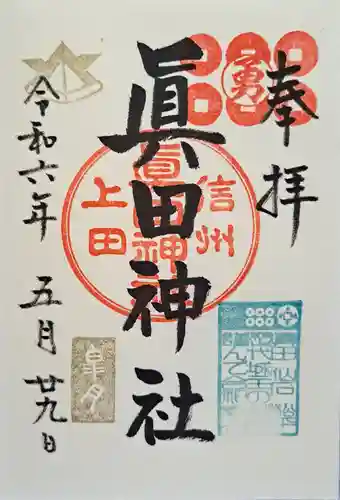 奉拝
勇
眞田神社
信州
眞田神社
上田
令和六年
五月廿九日
皐月